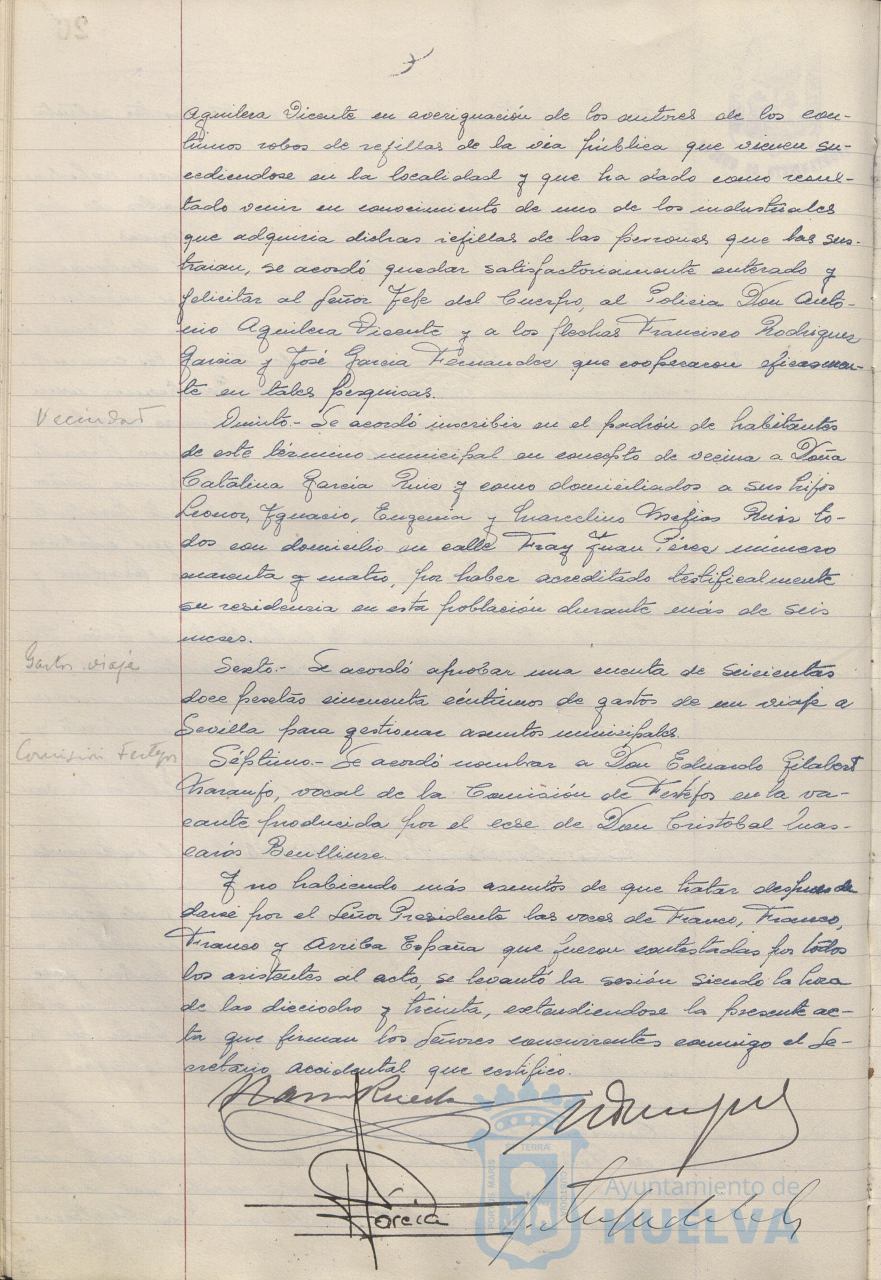 Aguilera Vicente en averiguación de los autores de los con-
tinuos robos de rejillas de la vía pública que vienen su-
cediendose en la localidad y que ha dado como resul-
tado venir en conocimiento de uno de los industriales
que adquiria dichas rejillas de las personas que las sus-
traian, se acordó quedar satisfactoriamente enterado y
felicitar al Señor Jefe del Cuerpo, al Policia Don Anto-
nio Aguilera Vicente y a los flechas Francisco Rodriguez
Garcia y José Garcia Fernandez que cooperaron eficazmen-
te en tales pesquisas.
Vecindad
Quinto.- Se acordó inscribir en el padrón de habitantes
de este término municipal en concepto de vecina a Doña
Catalina Garcia Ruiz y como domiciliados a sus hijos
Leonor, Ygnacio, Eugenia y Marcelino Ruiz to-
dos con domicilio en calle Fray Juan Pérez número
cuarenta y cuatro, por haber acreditado testificalmente
su residencia en esta población durante más de seis
meses.
Gastos viaje
Sexto.- Se acordó aprobar una cuenta de seiscientas
doce pesetas cincuenta céntimos de gastos de un viaje a
Sevilla para gestionar asuntos municipales.
Comisión Festejos
Séptimo.- Se acordó nombrar a Don Eduardo Gilabert
Naranjo, vocal de la Comisión de Festejos en la va-
cante producida por el cese de Don Cristobal Mas-
carós Benlliure.
Y no habiendo más asuntos de que tratar despues de
darse por el Señor Presidente las voces de Franco, Franco,
Franco y Arriba España que fueron contestadas por todos
los asistentes al acto, se levantó la sesión siendo la hora
de las dieciocho y treinta, extendiendose la presente ac-
ta que firman los Señores concurrentes conmigo el Se-
cretario accidental que certifico.
García
Ayuntamiento de
HUELVA